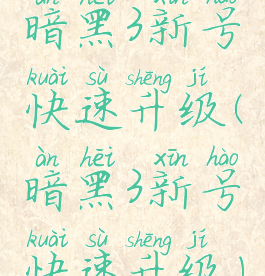 àn hēi xīn hào
暗黑3新号
kuài sù shēng jí
快速升级(
àn hēi xīn hào
暗黑3新号
kuài sù shēng jí
快速升级)